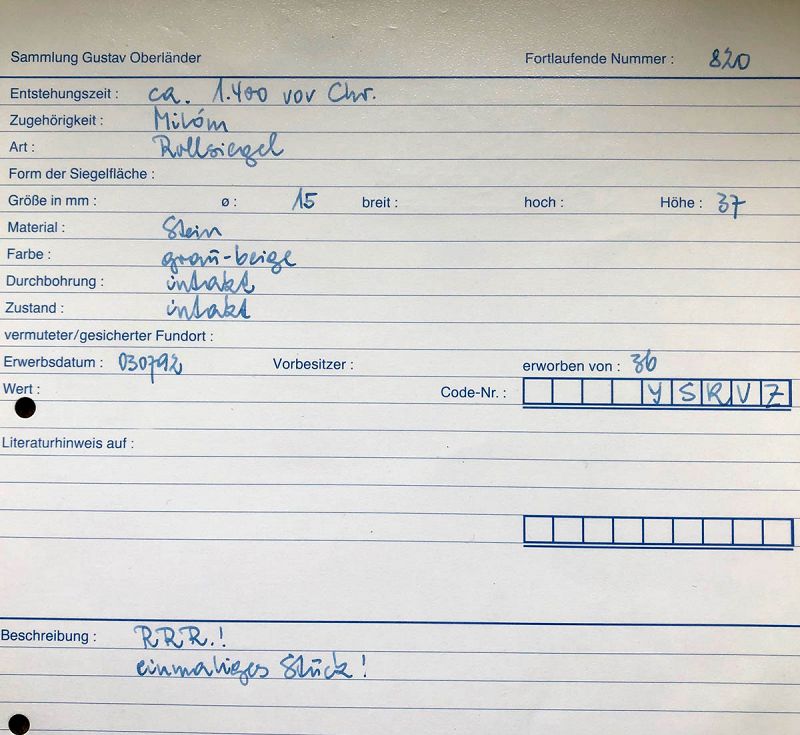 Sammlung Gustav Oberländer Fortlaufende Nummer : 820
Entstehungszeit : ca. 1.400 vor Chr.
Zugehörigkeit :
Art : Rollsiegel
Form der Siegelfläche :
Größe in mm : ø : 15 breit : hoch : Höhe : 37
Material : Stein
Farbe : grau-beige
Durchbohrung : intakt
Zustand : intakt
vermuteter/gesicherter Fundort :
Erwerbsdatum : 030792 Vorbesitzer : erworben von : 36
Wert : Code-Nr. : Y S R V Z
Literaturhinweis auf :
Beschreibung : RRR.!
einmaliges Stück!